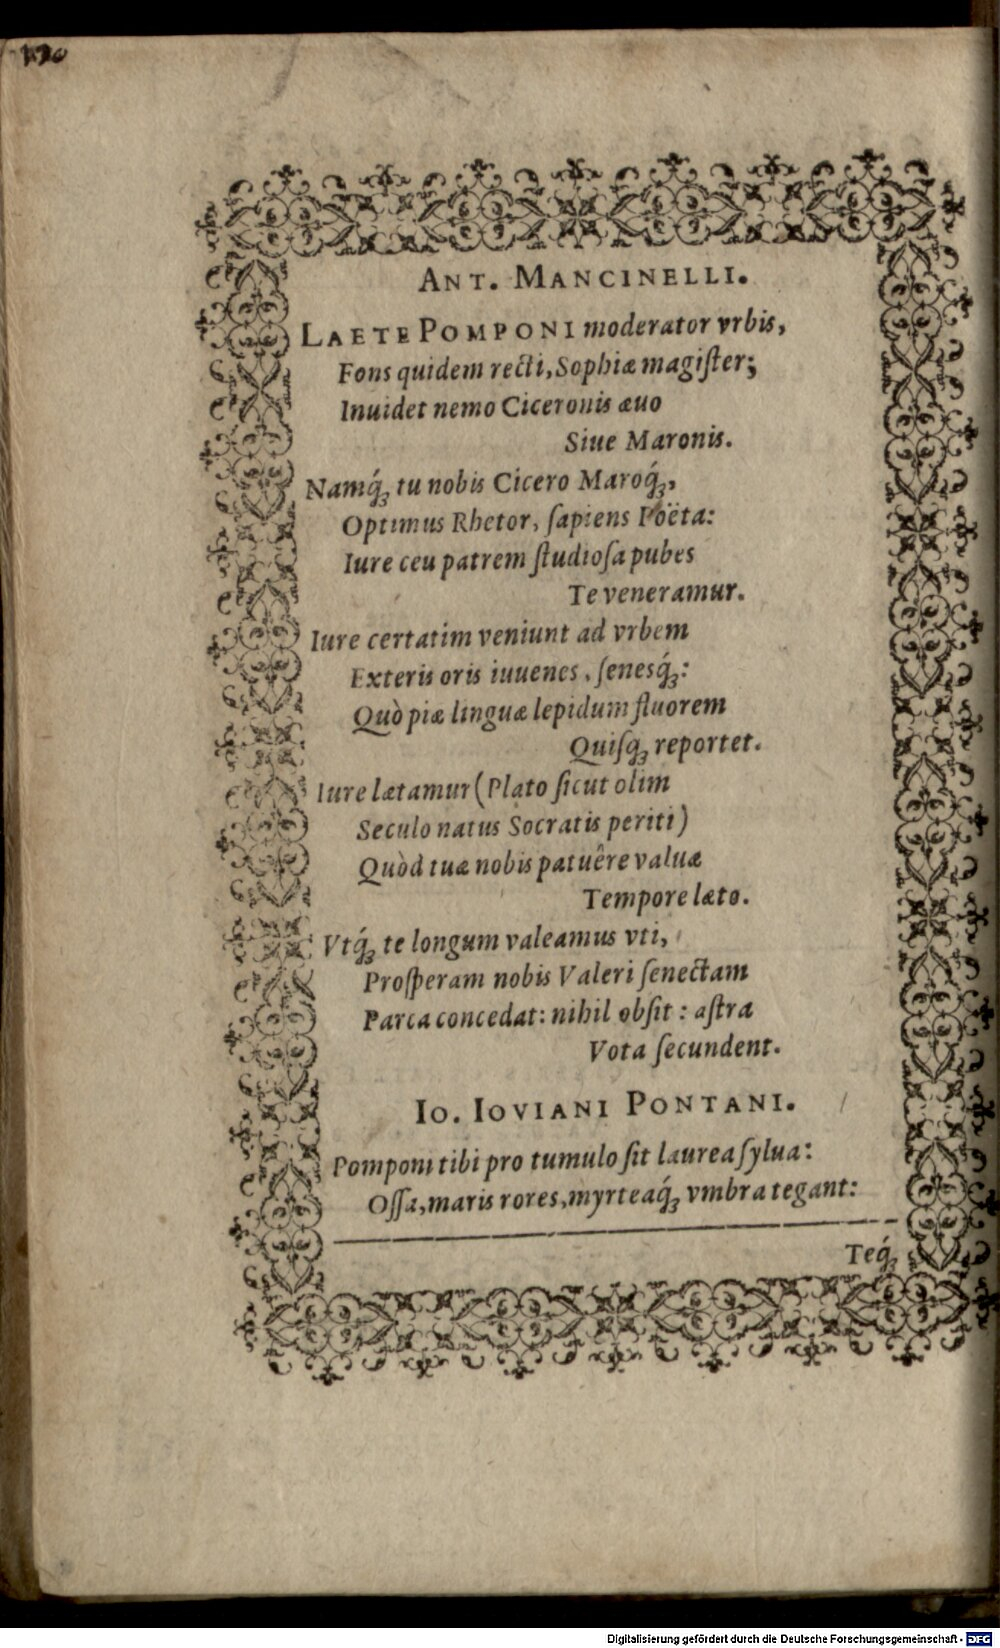 ANT. MANCINELLI.
LAETE POMPONI moderator vrbis,
Fons quidem recti, Sophiæ magiſter;
Inuidet nemo Ciceronis æuo
Siue Maronis.
Namq́ꝫ tu nobis Cicero Maroq́ꝫ,
Optimus Rhetor, ſapiens Poëta:
Iure ceu patrem ſtudioſa pubes
Te veneramur.
Iure certatim veniunt ad vrbem
Exteris oris iuuenes, ſenesq́ꝫ:
Quò piæ linguæ lepidum fluorem
Quiſqꝫ reportet.
Iure lætamur (Plato ſicut olim
Seculo natus Socratis periti)
Quòd tuæ nobis patuêre valuæ
Tempore læto.
Vtq́ꝫ te longum valeamus vti,
Proſperam nobis Valeri ſenectam
Parca concedat: nihil obſit: aſtra
Vota ſecundent.
IO. IOVIANI PONTANI.
Pomponi tibi pro tumulo ſit laurea ſylua:
Oſſa, maris rores, myrteaq́ꝫ vmbra tegant:
Teq́ꝫ
Digitalisierung gefördert durch die Deutsche Forschungsgemeinschaft - DFG